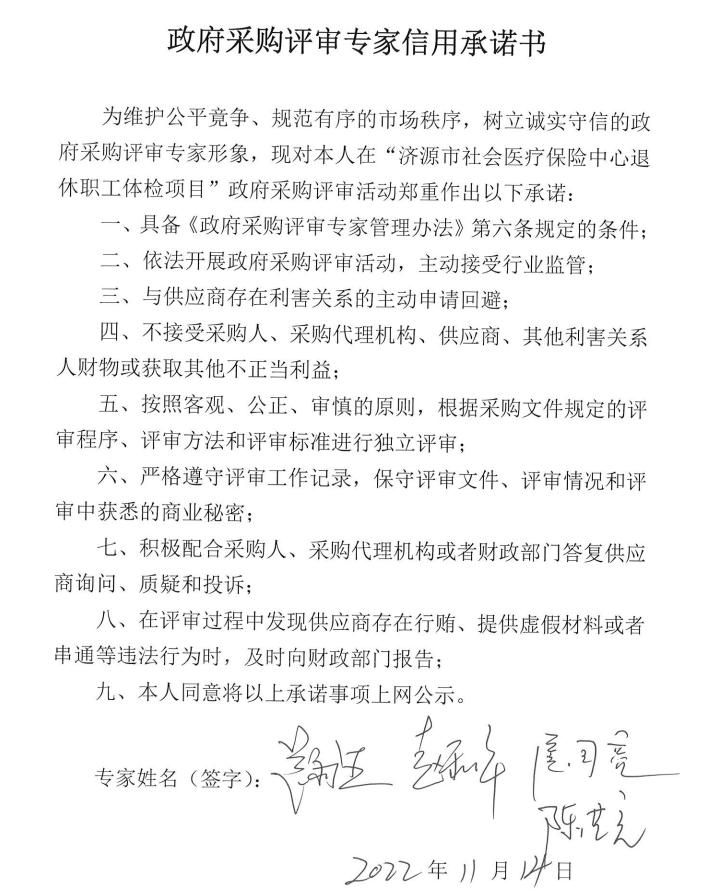 政府采购评审专家信用承诺书
为维护公平竟争、规范有序的市场秩序，树立诚实守信的政
府采购评审专家形象，现对本人在“济源市社会医疗保险中心退
休职工体检项目”政府采购评审活动郑重作出以下承诺：
一、具备《政府采购评审专家管理办法》第六条规定的条件；
二、依法开展政府采购评审活动，主动接受行业监管；
三、与供应商存在利害关系的主动申请回避；
四、不接受采购人、采购代理机构、供应商、其他利害关系
人财物或获取其他不正当利益；
五、按照客观、公正、审慎的原则，根据采购文件规定的评
审程序、评审方法和评审标准进行独立评审；
六、严格遵守评审工作记录，保守评审文件、评审情况和评
审中获悉的商业秘密；
七、积极配合采购人、采购代理机构或者财政部门答复供应
商询问、质疑和投诉；
八、在评审过程中发现供应商存在行贿、提供虚假材料或者
串通等违法行为时，及时向财政部门报告；
九、本人同意将以上承诺事项上网公示。
专家姓名（签字）：
2022年11月14日